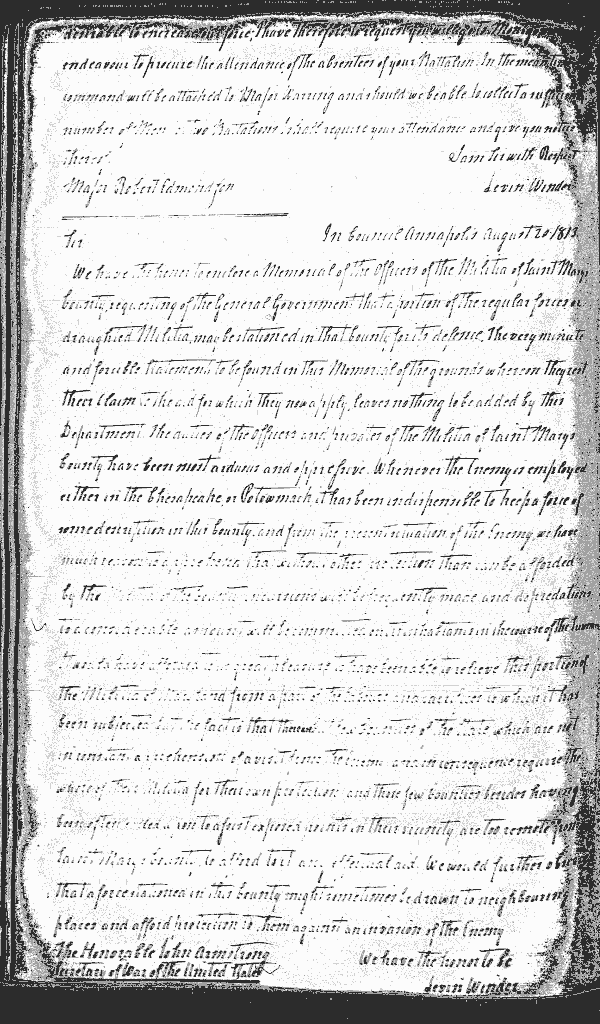 desirable to increase our force, I have therefore to request you will go to
endeavour to procure the attendance of the absentees of your Battalion. In the meantime
command will be attached to Major Waring and should we be able to collect a sufficient
number of Men Two Battalions I shall require your attendance and give you notice
thereof.
I am Sir with Respect
Major Robert Edmondson
Levin Winder
In Council Annapolis August 20. 1813
Sir
We have the honor to enclose a Memorial of the Officers of the Militia of Saint Marys
County, requesting of the General Government that a portion of the regular forces or
draughted Militia, may be stationed in that County for its defence. The very minute
and forcible Statement to be found in this Memorial of the grounds whereon they rest
their Claim to the aid for which they now apply, leaves nothing to be added by this
Department. The duties of the Officers and privates of the Militia of Saint Marys
County have been most arduous and oppressive. Whenever the Enemy is employed
either in the Chesapeake, or Potowmack it has been indispensible to keep a force of
some description in this County, and from the present situation of the Enemy, we have
much reason to apprehend that without other protection than can be afforded
by the Militia of the County incursions will be frequently made, and depredations
to a considerable amount will be committed on its inhabitants in the course of the
It would have afforded us great pleasure to have been able to relieve this portion of
the Militia of Maryland from a part of the labours and sacrifices to which it has
been subjected but the fact is that there are but few Counties of the State which are not
in constant apprehension of a visit from the Enemy, and in consequence require the
whole of their Militia for their own protection and these few Counties besides having
been often called upon to assist exposed points in their vicinity are too remote from
Saint Marys County, to afford to it any effectual aid. We would further observe
that a force stationed in this County might sometimes be drawn to neighbouring
places and afford protection to them against an invasion of the Enemy
The Honorable John Armstrong
We have the honor to be
Secretary of War of the United States
Levin Winder